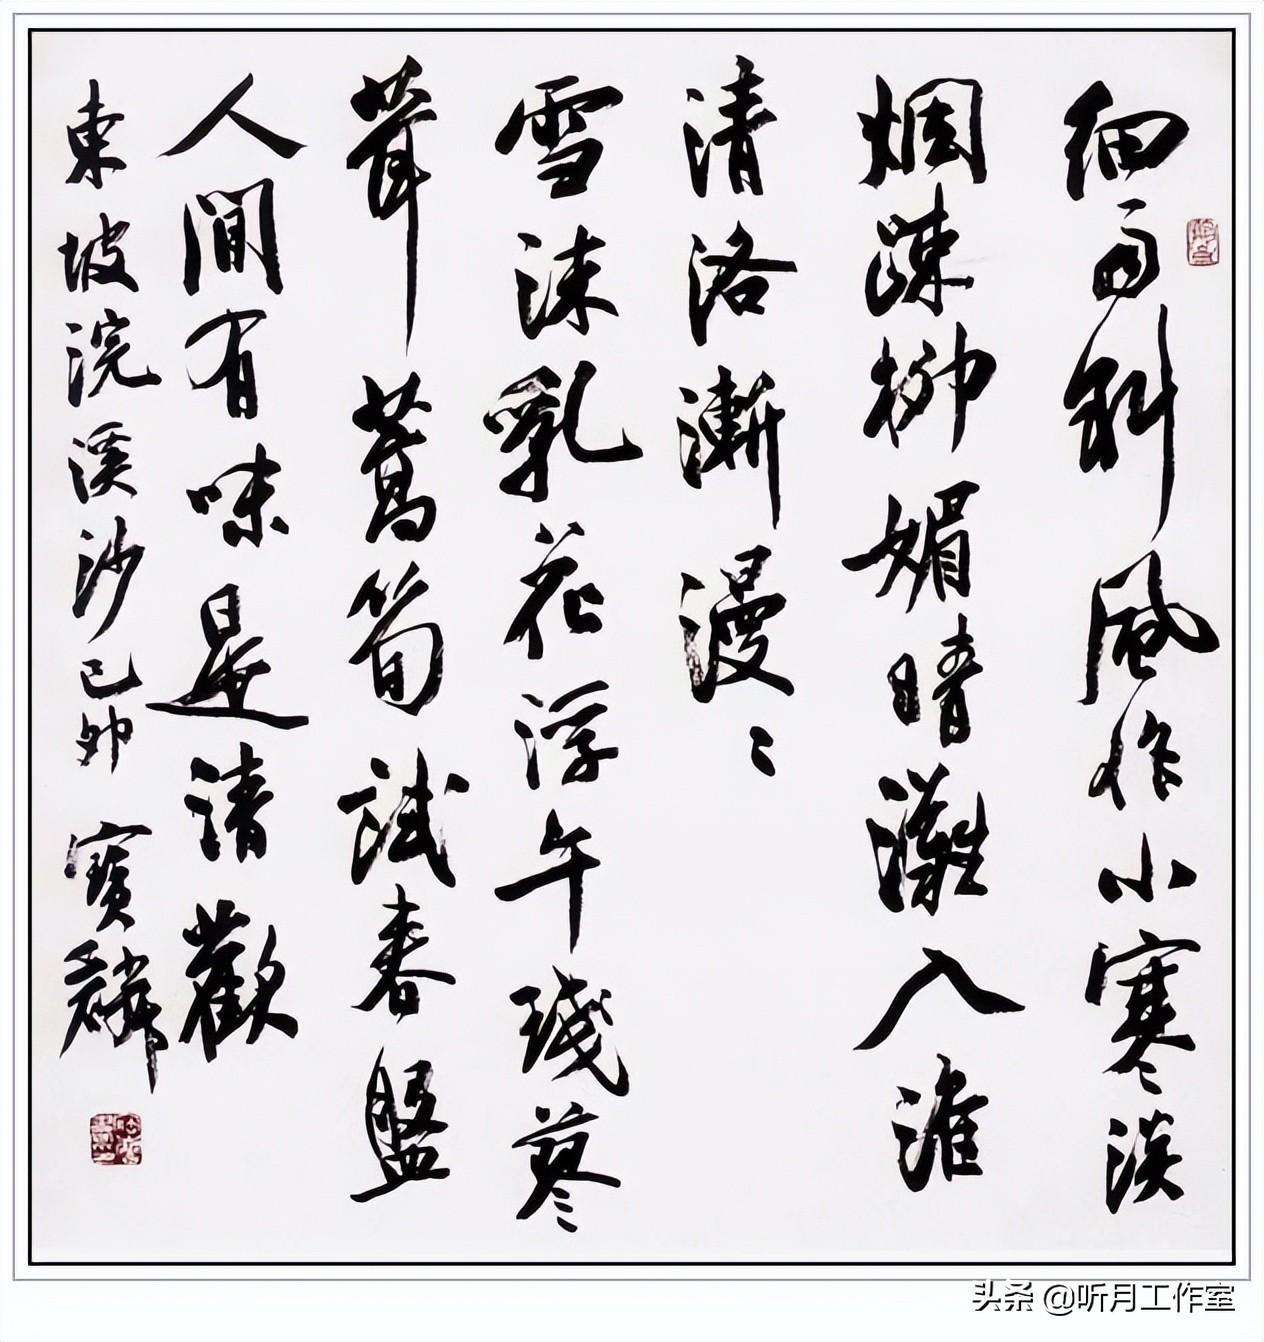 細雨斜風作小寒淡
烟疎柳媚晴灘入淮
清洛漸漫〻
雪沫乳花浮午琖蓼
茸蒿筍試春盤
人間有味是清歡
東坡浣溪沙己卯 寶麟
头条 @听月工作室